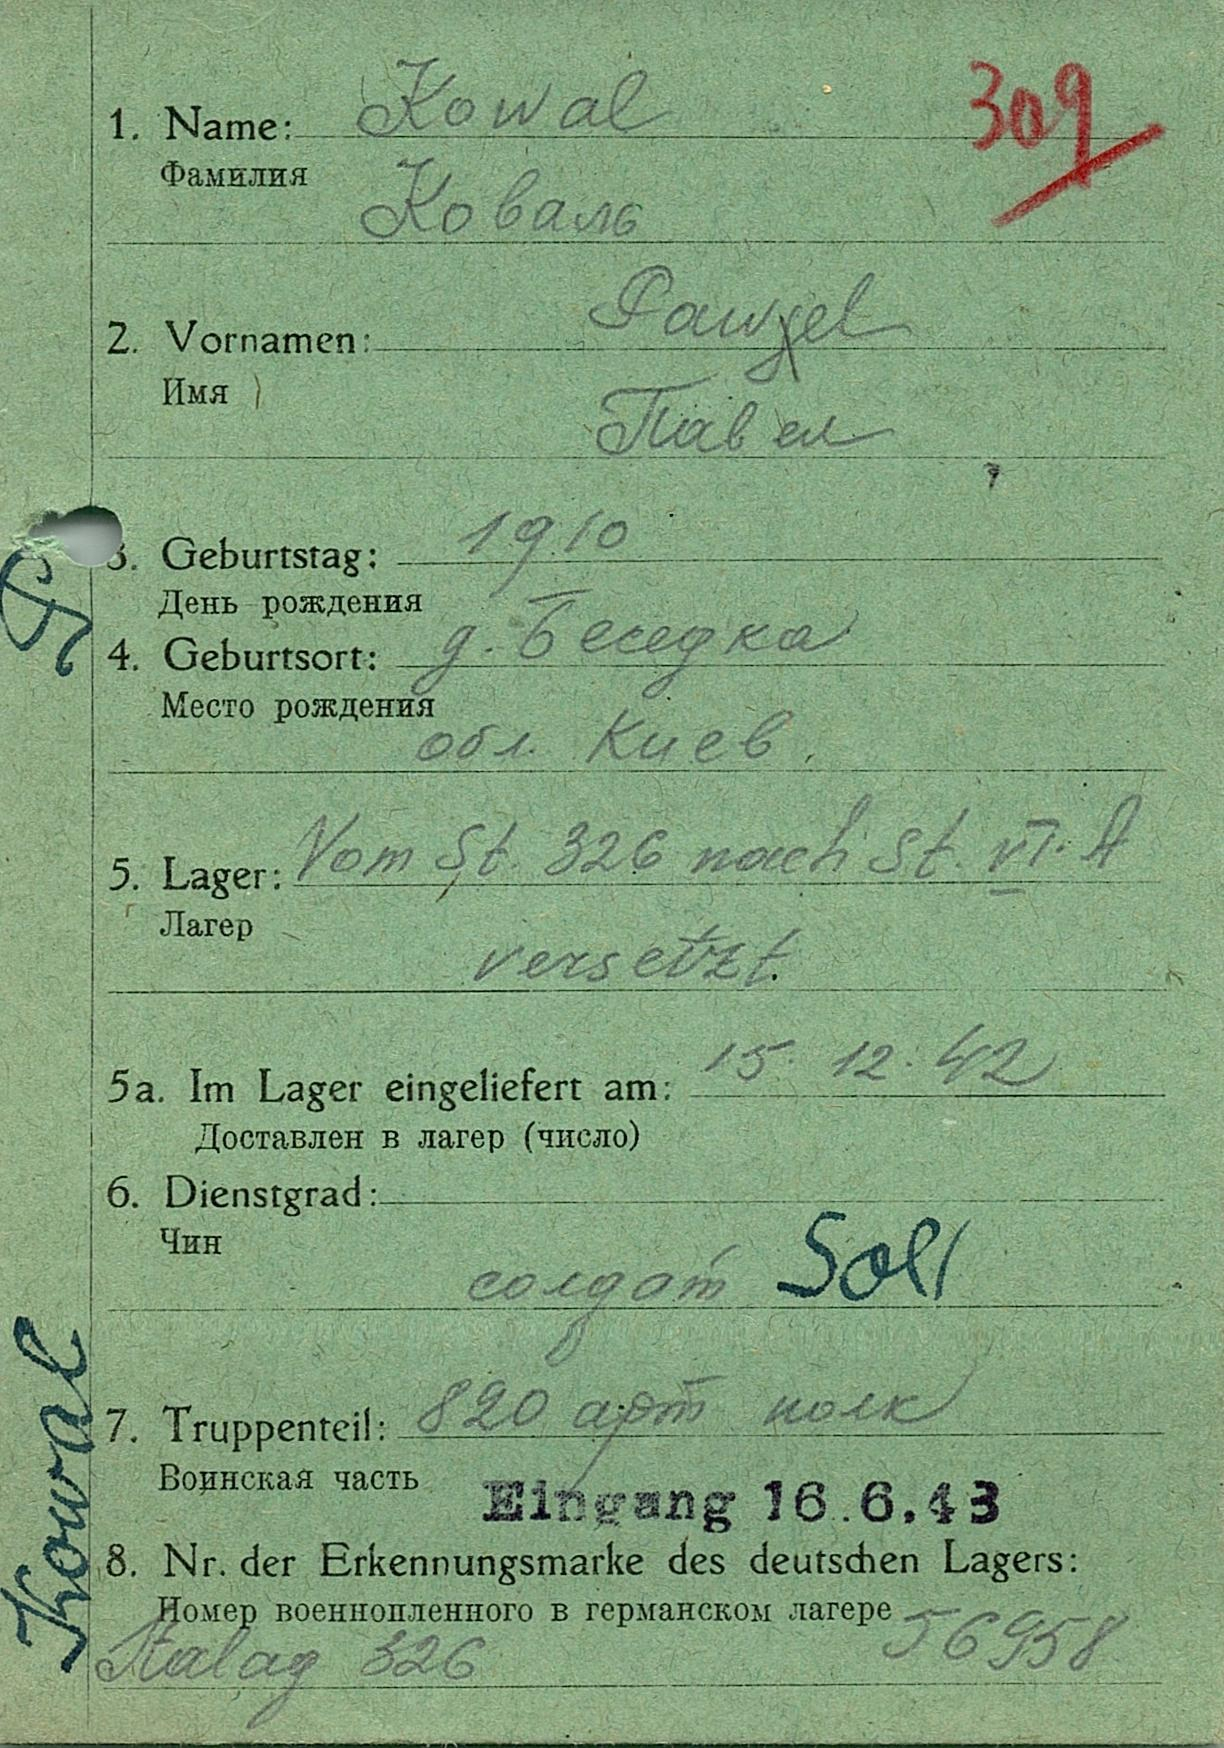 309
1. Name: Kowal
Фамилия
Коваль
2. Vornamen: Pawel
Имя
Павел
3. Geburtstag: 1910
День рождения
4. Geburtsort: д. Беседка
Место рождения
обл. Киев.
5. Lager: Vom St. 326 nach St. VI. A
Лагер
versetzt.
5a. Im Lager eingeliefert am: 15. 12. 42
Доставлен в лагер (число)
6. Dienstgrad:
Чин
солдат Sol
7. Truppenteil: 820 арт полк
Воинская часть
Eingang 16.6.43
8. Nr. der Erkennungsmarke des deutschen Lagers:
Номер военнопленного в германском лагере
Stalag 326 56958
Kowal